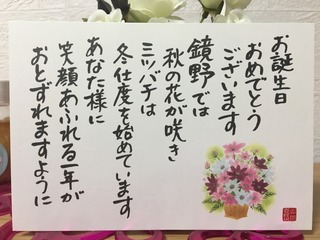 お誕生日
おめでとう
ございます
鏡野では
秋の花が咲き
ミツバチは
冬仕度を始めています
あなた様に
笑顔あふれる一年が
おとずれますように